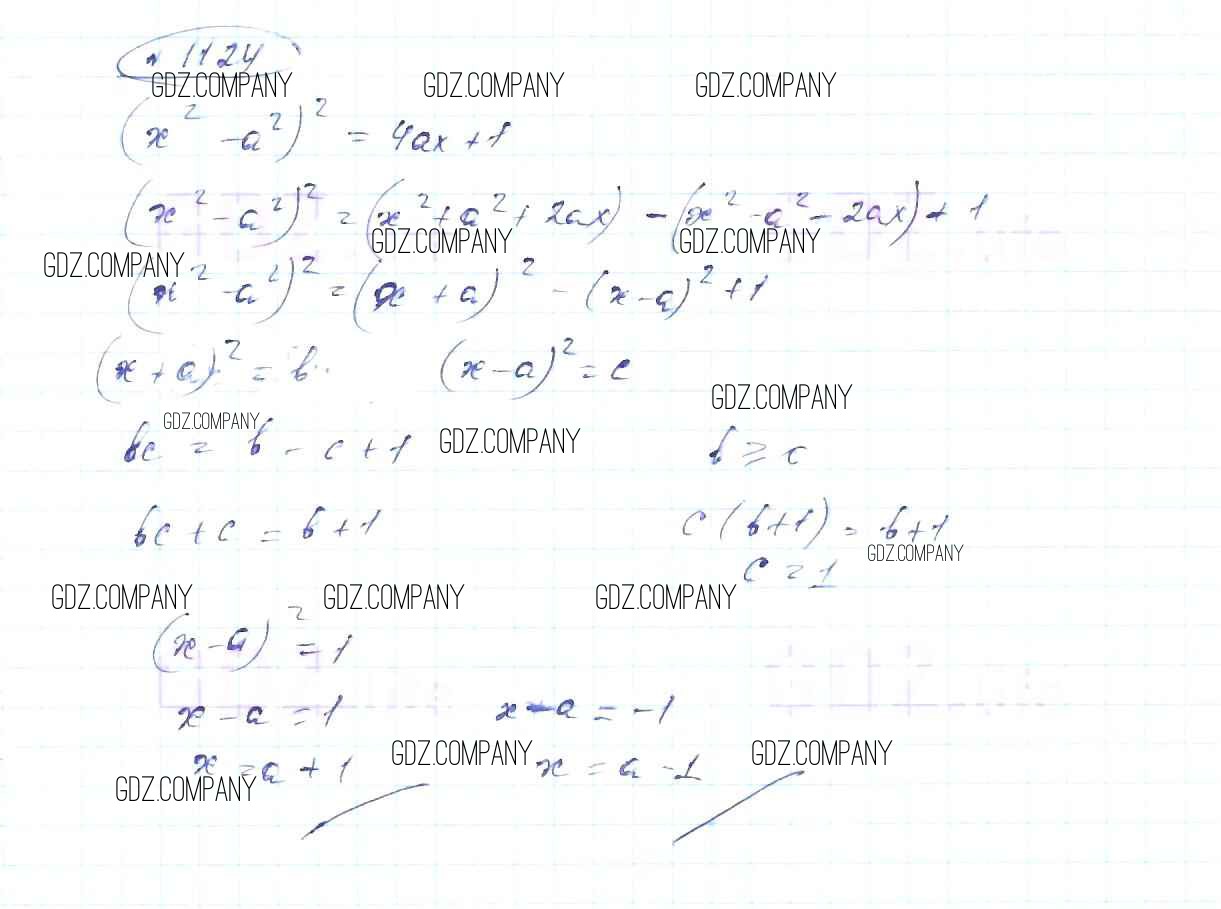 № 1124
GDZ.COMPANY GDZ.COMPANY GDZ.COMPANY
(x² - a²)² = 4ax + 1
(x² - a²)² = (x² + a² + 2ax) - (x² - a² - 2ax) + 1
GDZ.COMPANY GDZ.COMPANY
GDZ.COMPANY
(x² - a²)² = (x + a)² - (x - a)² + 1
(x + a)² = b. (x - a)² = c
GDZ.COMPANY
GDZ.COMPANY GDZ.COMPANY
bc = b - c + 1 b ≥ c
bc + c = b + 1 c(b + 1) = b + 1
GDZ.COMPANY
c = 1
GDZ.COMPANY GDZ.COMPANY GDZ.COMPANY
(x - a)² = 1
x - a = 1 x - a = -1
GDZ.COMPANY GDZ.COMPANY
x = a + 1 x = a - 1
GDZ.COMPANY